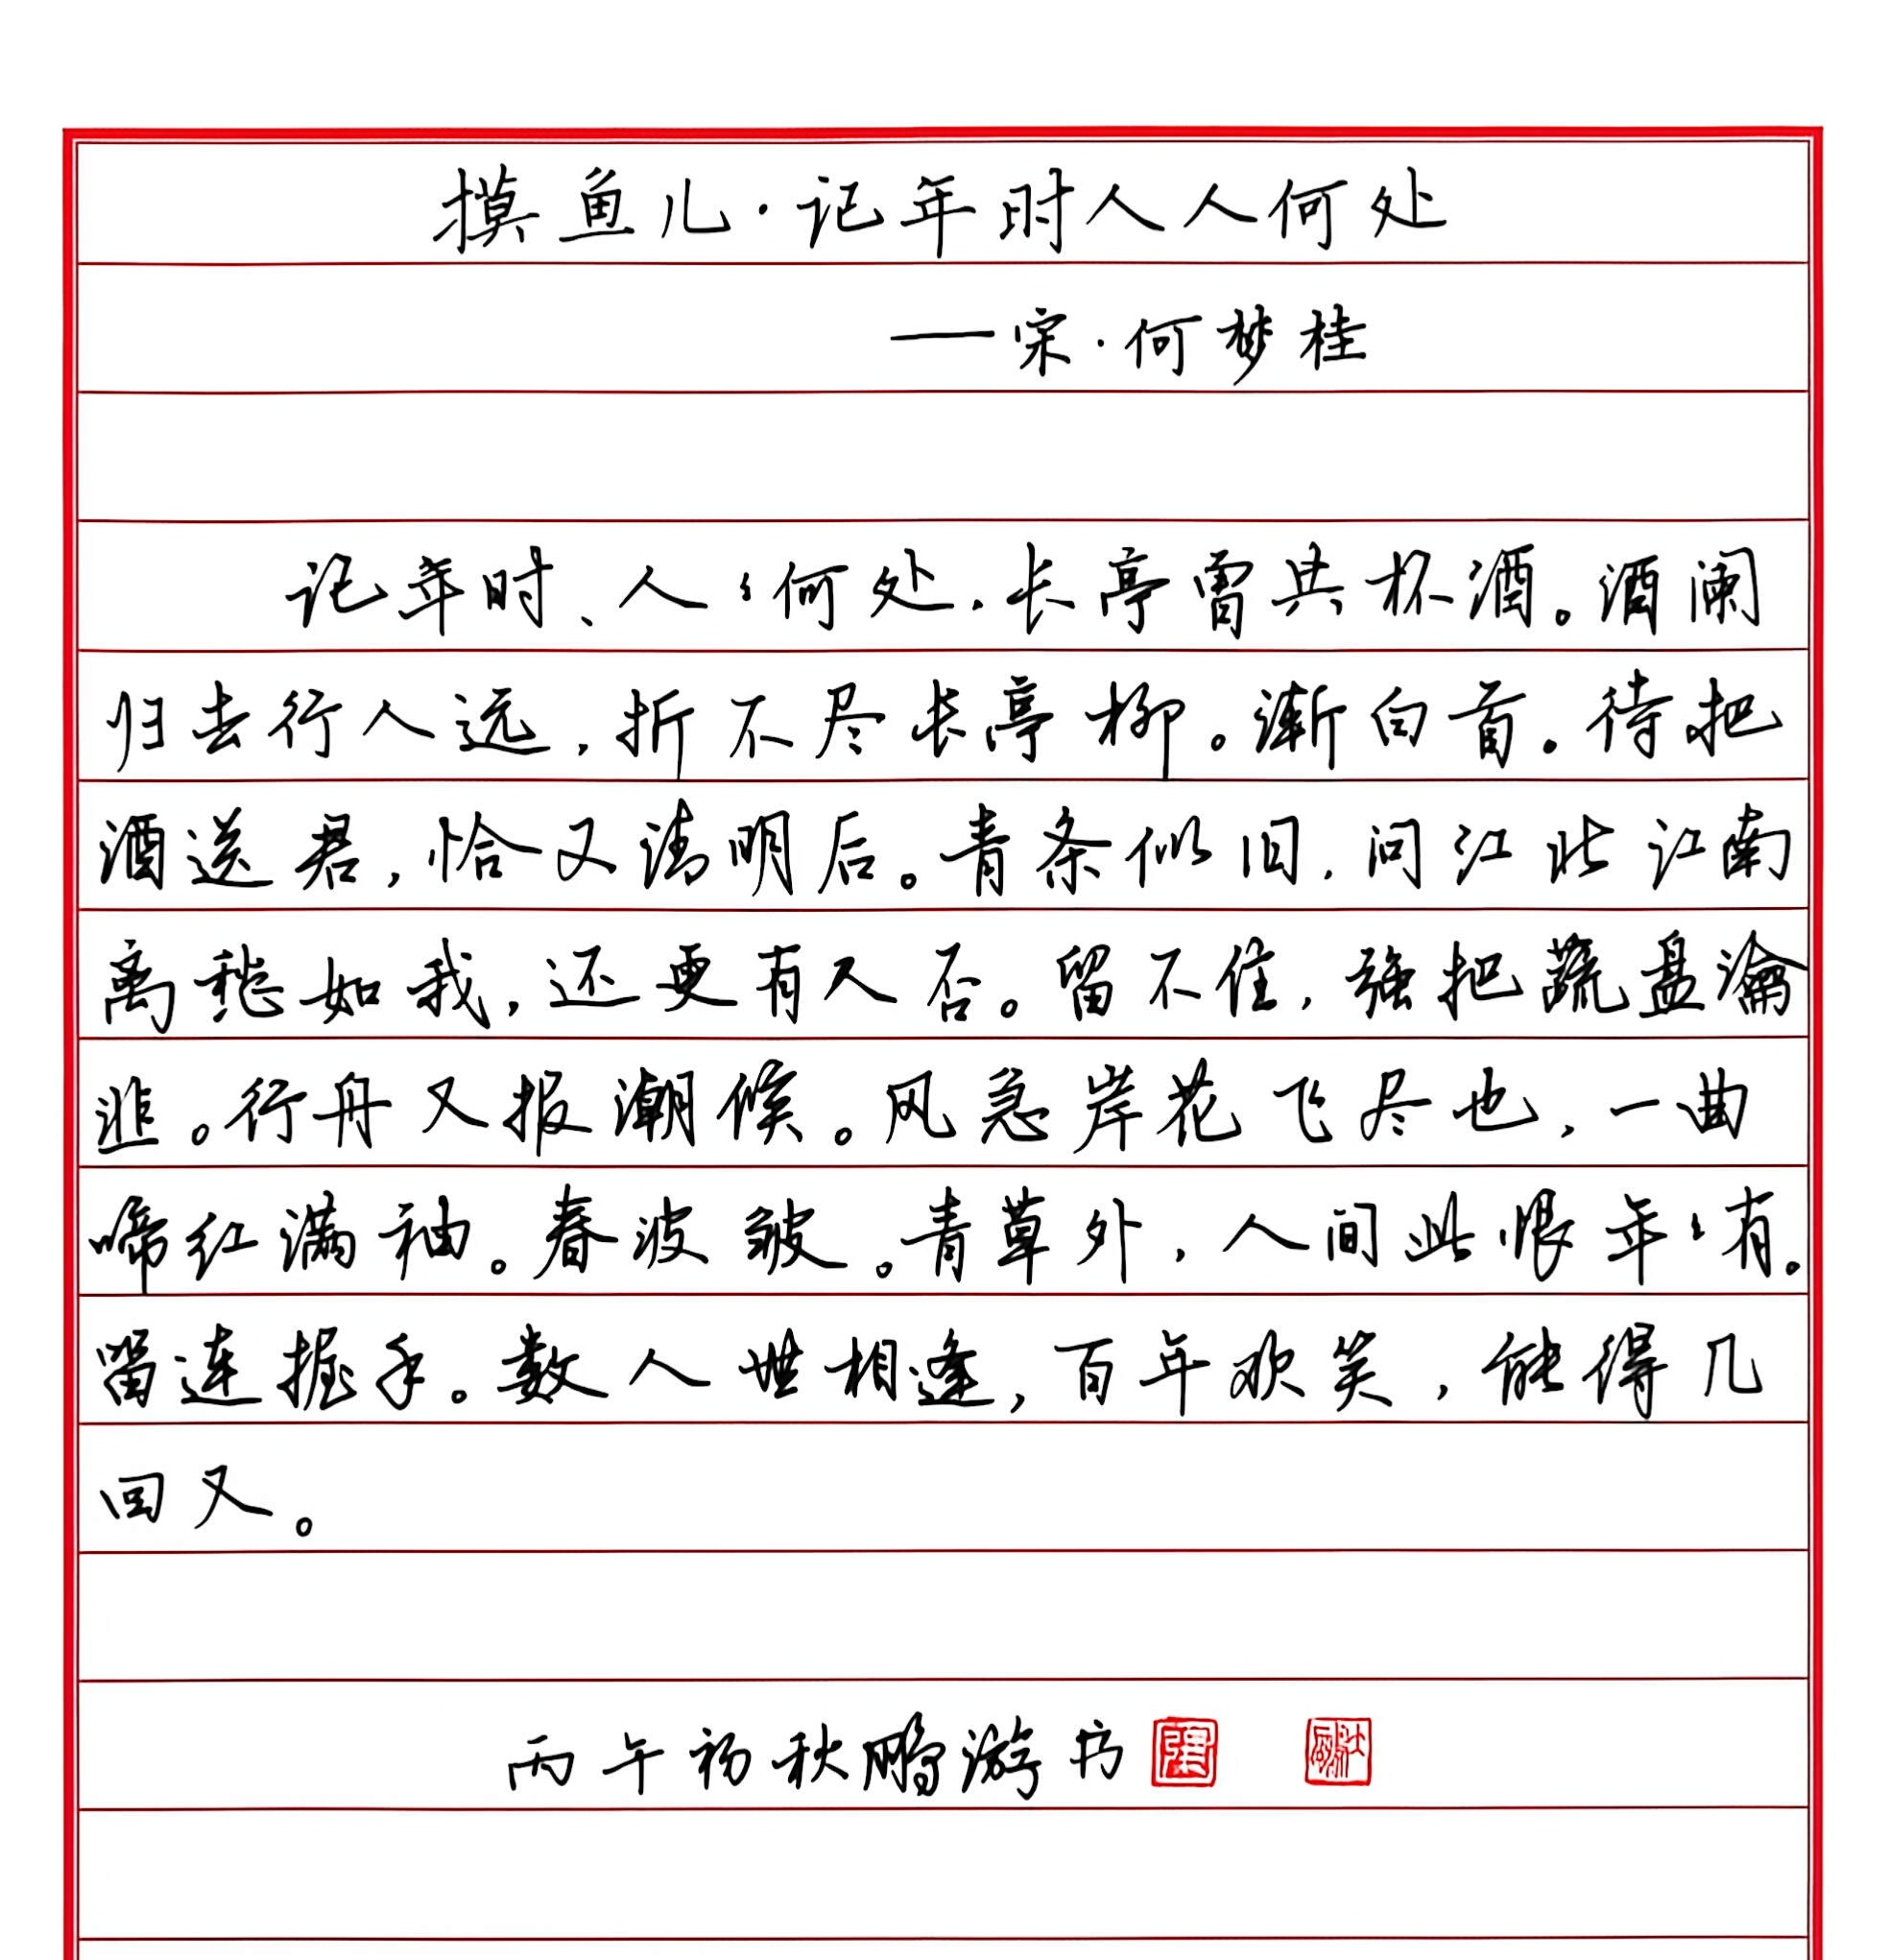 摸鱼儿·记年时人人何处
——宋·何梦桂
记年时、人々何处，长亭曾共杯酒。酒阑
归去行人远，折不尽长亭柳。渐白首。待把
酒送君，恰又清明后。青条似旧，问江北江南
离愁如我，还更有人否。留不住，强把蔬盘瀹
韭。行舟又报潮候。风急岸花飞尽也，一曲
啼红满袖。春波皱。青草外，人间此恨年々有。
留连握手。数人世相逢，百年欢笑，能得几
回又。
丙午初秋鹏游书